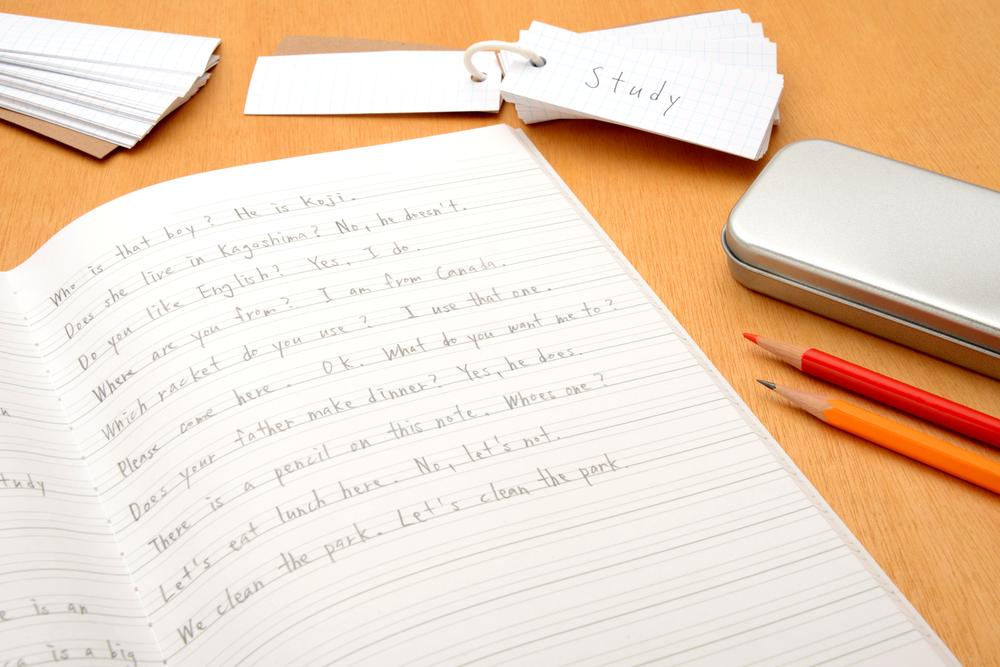 Study
Who is that boy? He is Koji.
Does she live in Kagoshima? No, he doesn't.
Do you like English? Yes, I do.
Where are you from? I am from Canada.
Which racket do you use? I use that one.
Please come here. OK. What do you want me to?
Does your father make dinner? Yes, he does.
There is a pencil on this note. Whoes one?
Let's eat lunch here. No, let's not.
We clean the park. Let's clean the park.
tudy
is an
is a big